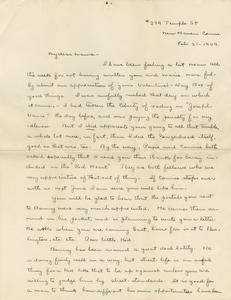 #379 Temple St
New Haven Conn
Feb. 21-1909.
My dear Mama-
I have been feeling a bit mean all
this week for not having written you and Marie more ful-
ly about our appreciation of your Valentine-Day Box of
good things. I was awfully rushed that day on which
it came,- I had taken the liberty of reading in "Joseph
Vance" the day before, and was paying the penalty for my
idleness. But I did appreciate your going to all that trouble
a whole lot more, in fact, than I did the
good as that was. By the way, Pepie and Connie both
asked especially that I send you their thanks for being in-
cluded in the "Red Heart". They are both fellows who are
very appreciative of that sort of thing. If Connie stops over
with us next June I am sure you will like him.
You will be glad to hear that the jacket you sent
to Benny was very much appreciated. He carries three or
in his pocket, and is planning to write you a letter.
He asks where you are coming but, how far is it to Ben-
nington, etc. etc. Poor little kid.
Benny has been around a great deal lately. He
is doing finely well in a way, but street life is an awful
thing for a kid like that to be up against unless you are
willing to judge him by street standards. It is good for
a man to think how different his own opportunities have been